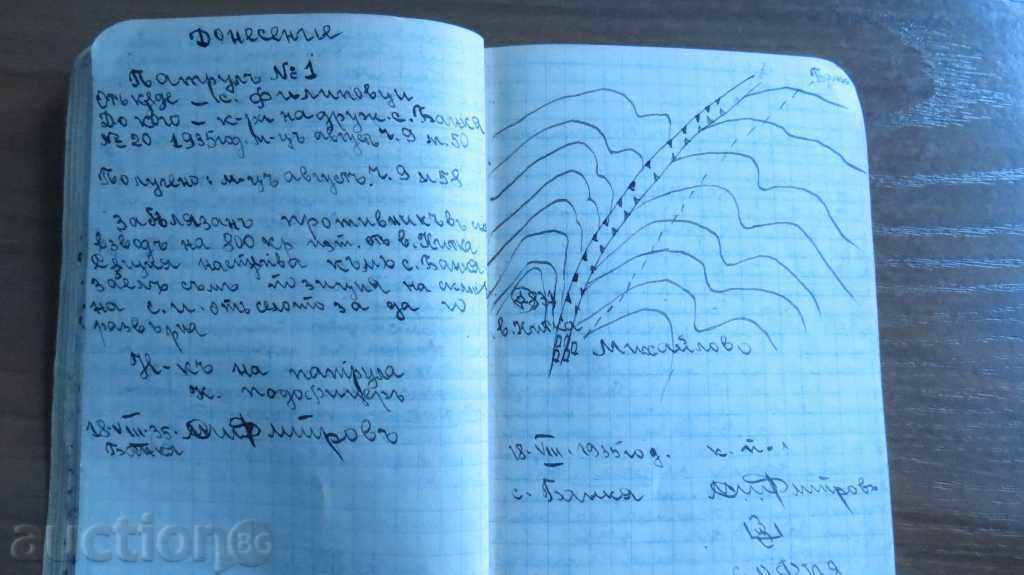 Донесение
Патрулъ № 1
Отъ кѫде – с. Филиповци
До кого – к-ра на друж. с. Банкя
№ 20 1935 год. м-цъ августъ ч. 9 м. 50
Получено: м-цъ августъ ч. 9 м 58
Забѣлязанъ противникъ въ
взводъ на 800 кр. изт. отъ в. Китка
настѫпва къмъ с. Банкя
заехъ съмъ позиция на
на с. и. отъ селото за да го
развърна
Н-къ на патрула
к. подофицеръ
18·VIII·35· Димитровъ
Банкя
831
в. Китка
Михайлово
18·VIII·1935 год. к. п.
с. Банкя Димитровъ
София
auction BG